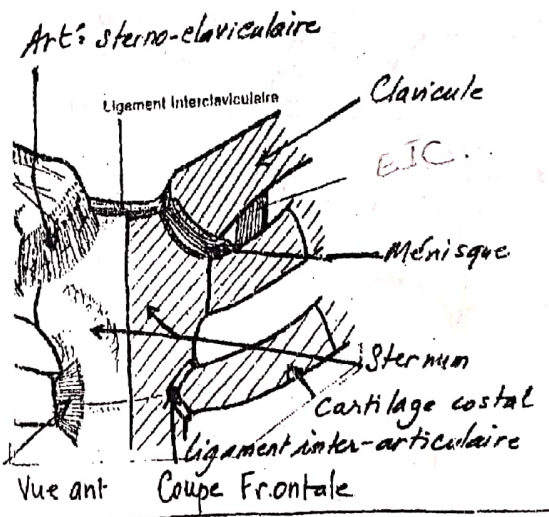 Art° sterno-claviculaire
Ligament Interclaviculaire
Clavicule
EIC.
Ménisque
Sternum
Cartilage costal
Ligament inter-articulaire
Vue ant
Coupe Frontale